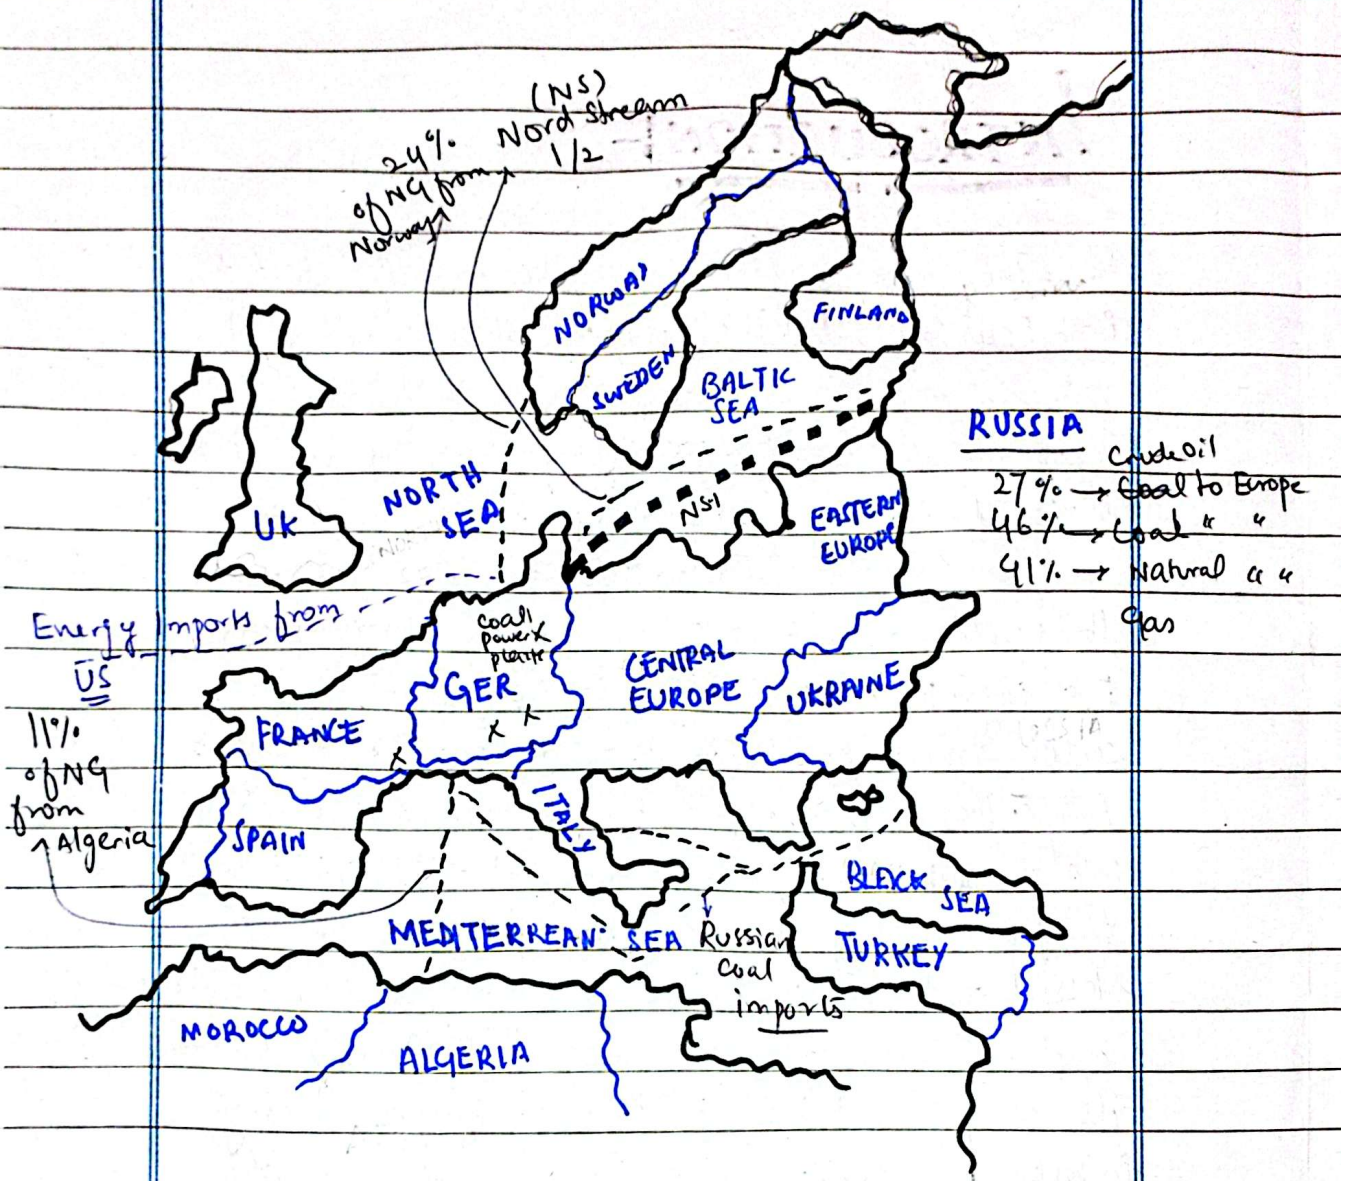 (NS)
Nord Stream
1/2
24%
of NG from
Norway
NORWAY
SWEDEN
FINLAND
BALTIC
SEA
RUSSIA
Crude Oil
27% → Coal to Europe
46% → Coal " "
41% → Natural " "
Gas
NORTH
SEA
UK
NS-1
EASTERN
EUROPE
Energy Imports from
US
coal
power X
plants
GER
X X
X
CENTRAL
EUROPE
UKRAINE
FRANCE
11%
of NG
from
Algeria
SPAIN
ITALY
BLACK
SEA
MEDITERREAN SEA
Russian
coal
imports
TURKEY
MOROCCO
ALGERIA